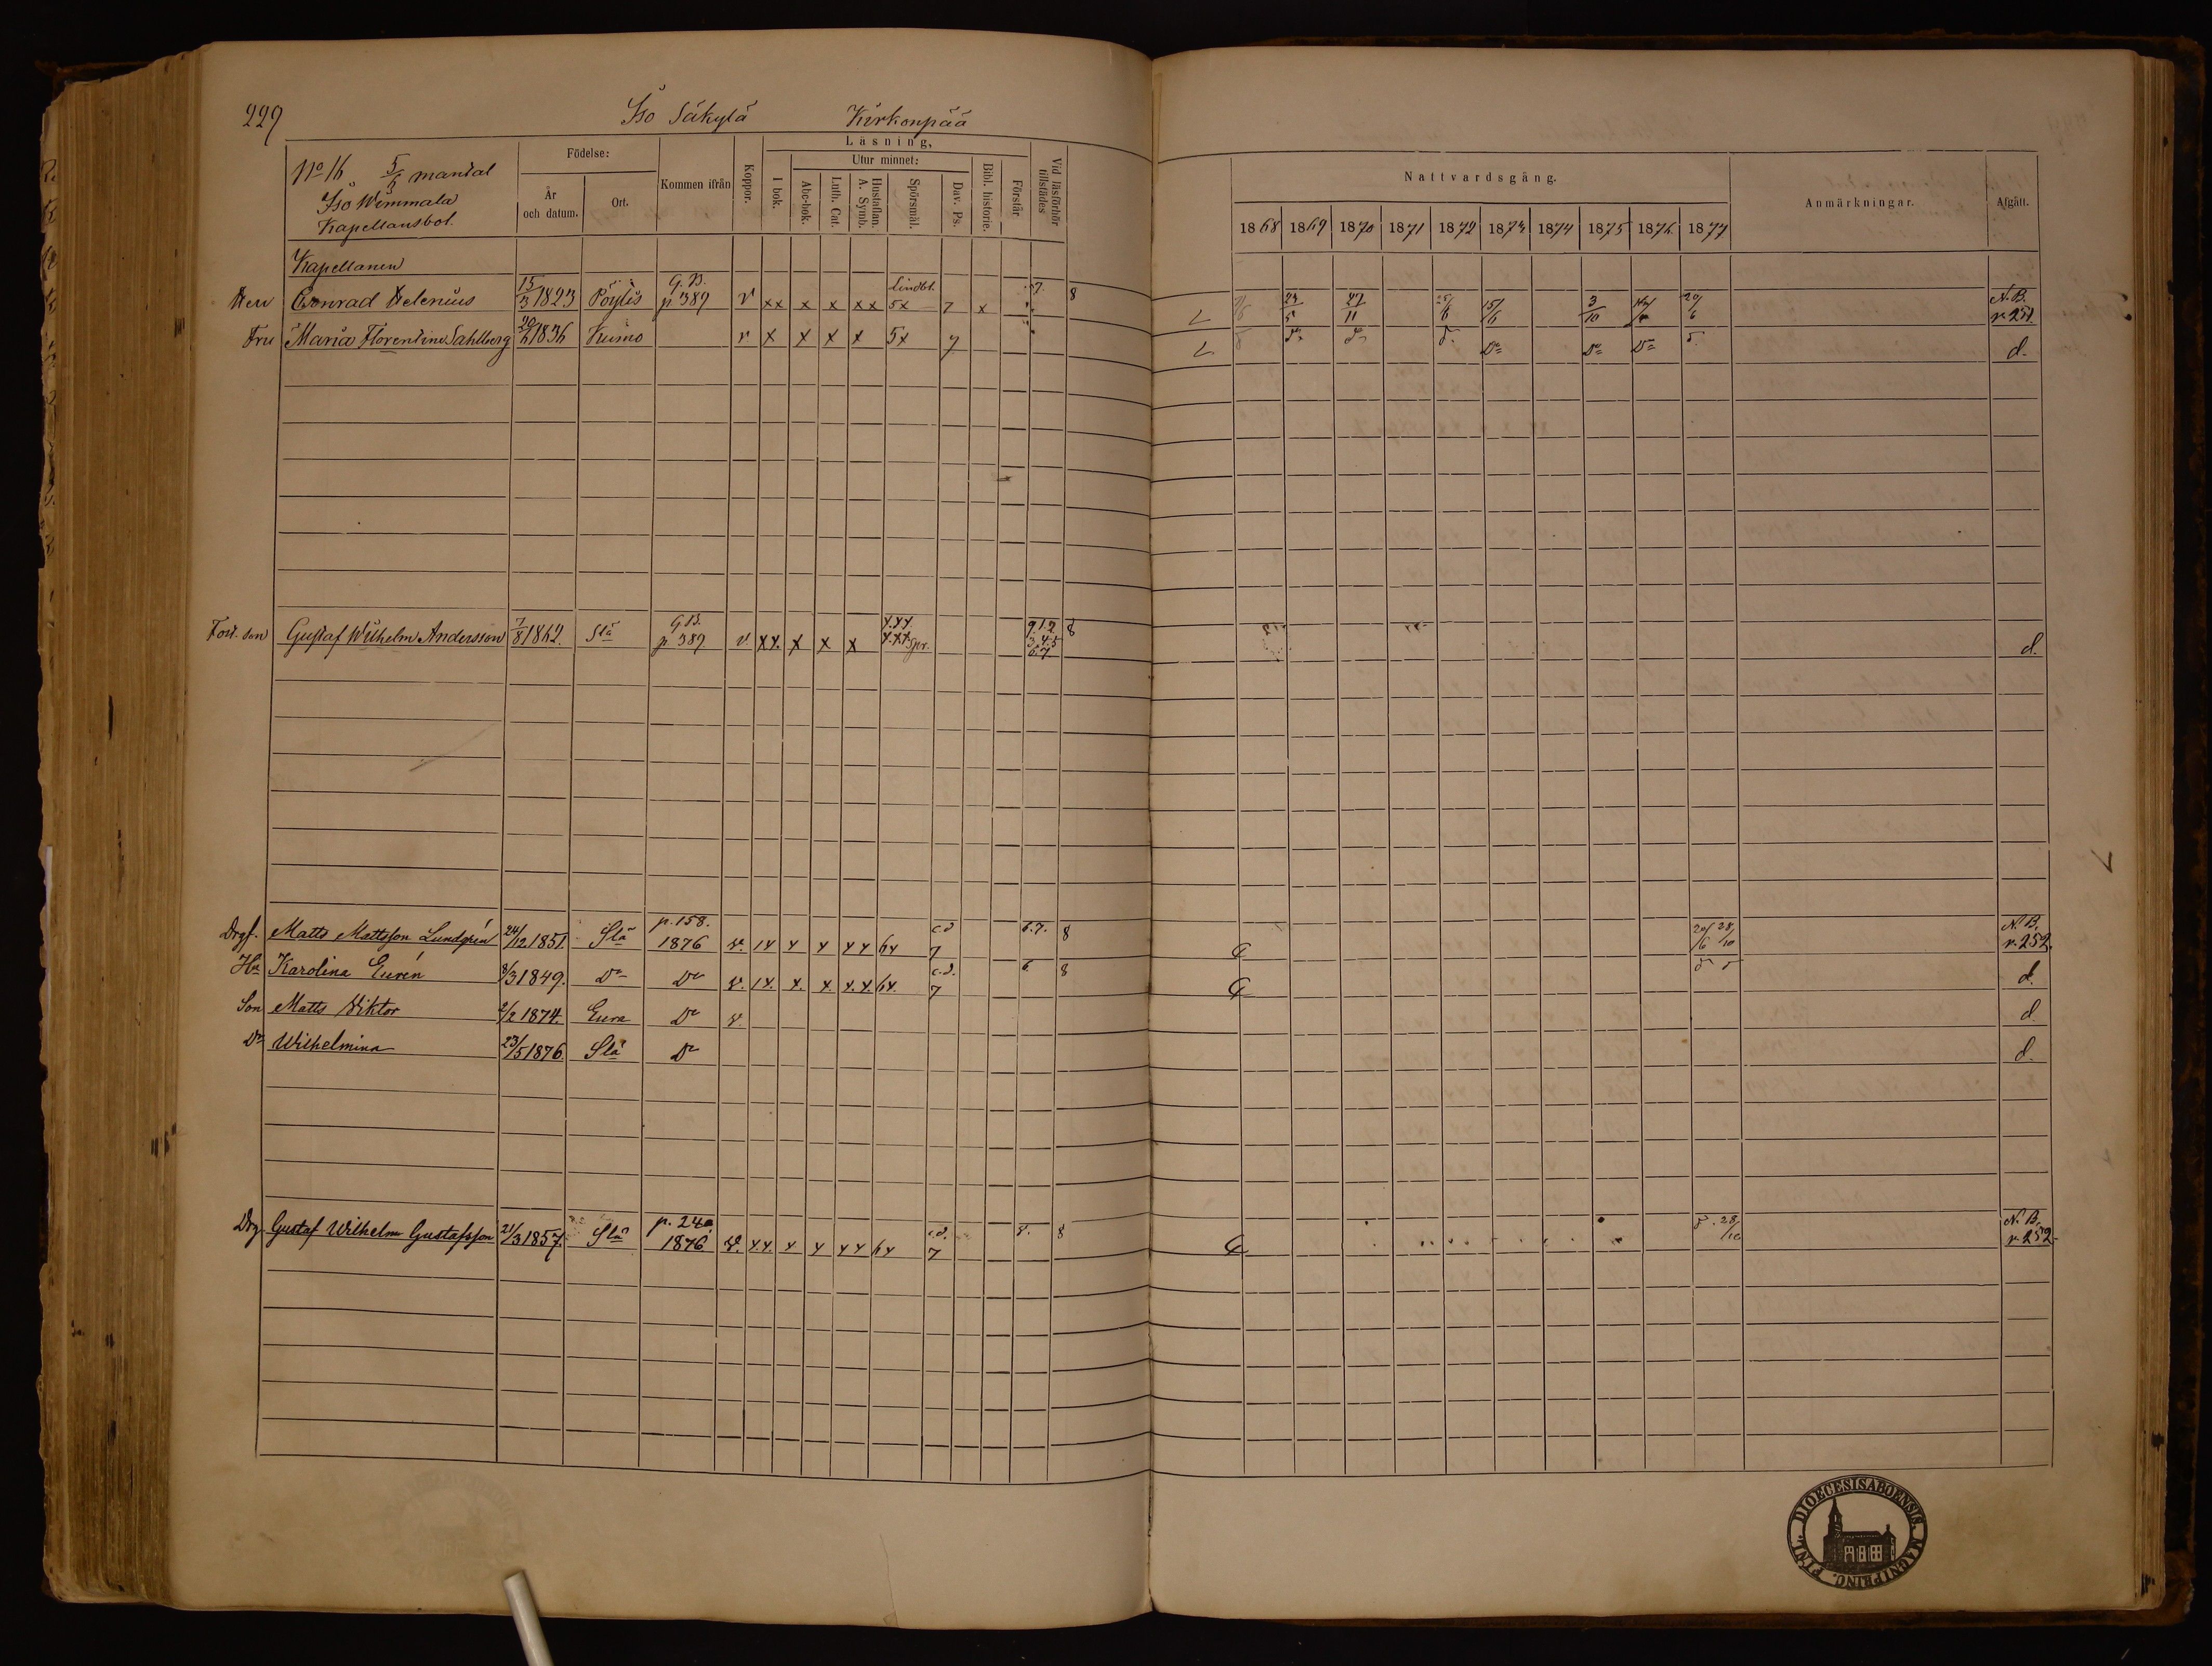 229
Iso Säkylä Kirkonpää
No 16 5/6 mantal
Iso Wimmala
Kapellansbol.
Födelse:
År och datum.
Ort.
Kommen ifrån
Koppor.
Läsning,
I bok.
Utur minnet:
Abc-bok.
Luth. Cat.
Hustaflan. A. Symb.
Spörsmål.
Dav. Ps.
Bibl. historie.
Förstår
Vid läsförhör tillstädes
Nattvardsgång.
1868 1869 1870 1871 1872 1873 1874 1875 1876 1877
Anmärkningar.
Afgått.
Kapellanen
Herr Conrad Helenius 15/3 1823 Pöytis G.B. p 389 v xx x x xx 5x 7 x 7. 8 L 23/5 27/11 25/6 15/6 3/10 20/6 N.B. p. 251
Fru Maria Florentina Sahlberg 1836 Kumo v x x x x 5x 7 L Do Do Do d.
Fost. son Gustaf Wilhelm Andersson 7/8 1862. Slä G.B. p 389 v. xx. x x x xxx xxx Spr. 9.1.2 3.4.5 6.7 8 d.
Drgf. Matts Mattsson Lundgrén 24/12 1851. Slä p. 158. 1876 v. 1x x x xx 6x c.d 7 6.7. 8 C 20/6 28/10 N.B. p. 252.
Hu Karolina Eurén 3/3 1849. Do Do v. 1x. x. x. x.x. 6x. c.d. 7 6. 8 C d.
Son Matts Viktor 2/2 1874. Eura Do v. d.
Dr Wilhelmina 23/5 1876. Slä Do d.
Drg Gustaf Wilhelm Gustafsson 21/3 1857. Slä p. 240. 1876 v. x.x. x x xx 6x c.d. 7 8. 8 C 28/10 N.B. p. 252.
DIOECESIS ABOENSIS. MAGNI PRINC. FINL.